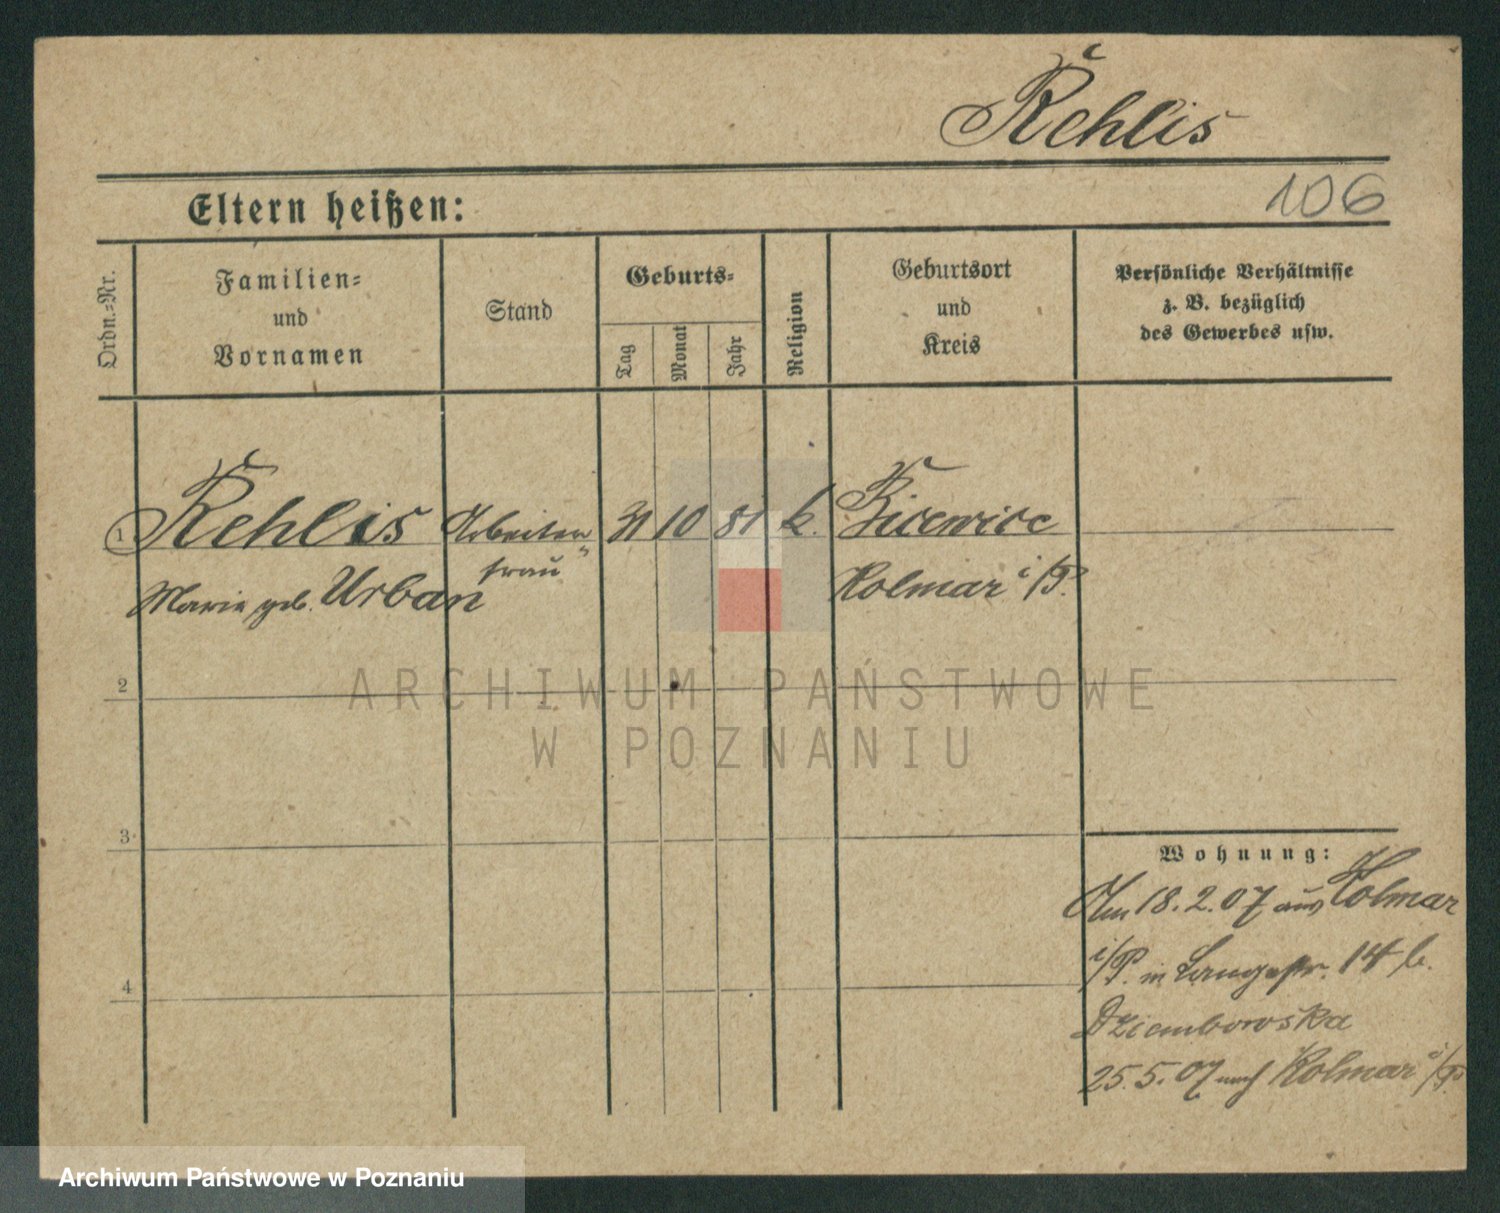 Rehlis
106
Eltern heißen:
Ordn.-Nr.
Familien-
und
Vornamen
Stand
Geburts-
Tag
Monat
Jahr
Religion
Geburtsort
und
Kreis
Persönliche Verhältnisse
z. B. bezüglich
des Gewerbes usw.
1 Rehlis Arbeiter 31 10 81 k.
frau
Marie geb. Urban Kolmar i/P.
ARCHIWUM PAŃSTWOWE
W POZNANIU
2
3
4
Wohnung:
Am 18.2.07 aus Kolmar
i/P. in Langestr. 14 b.
Dziemboroska
25.5.07 nach Kolmar i/P.
Archiwum Państwowe w Poznaniu